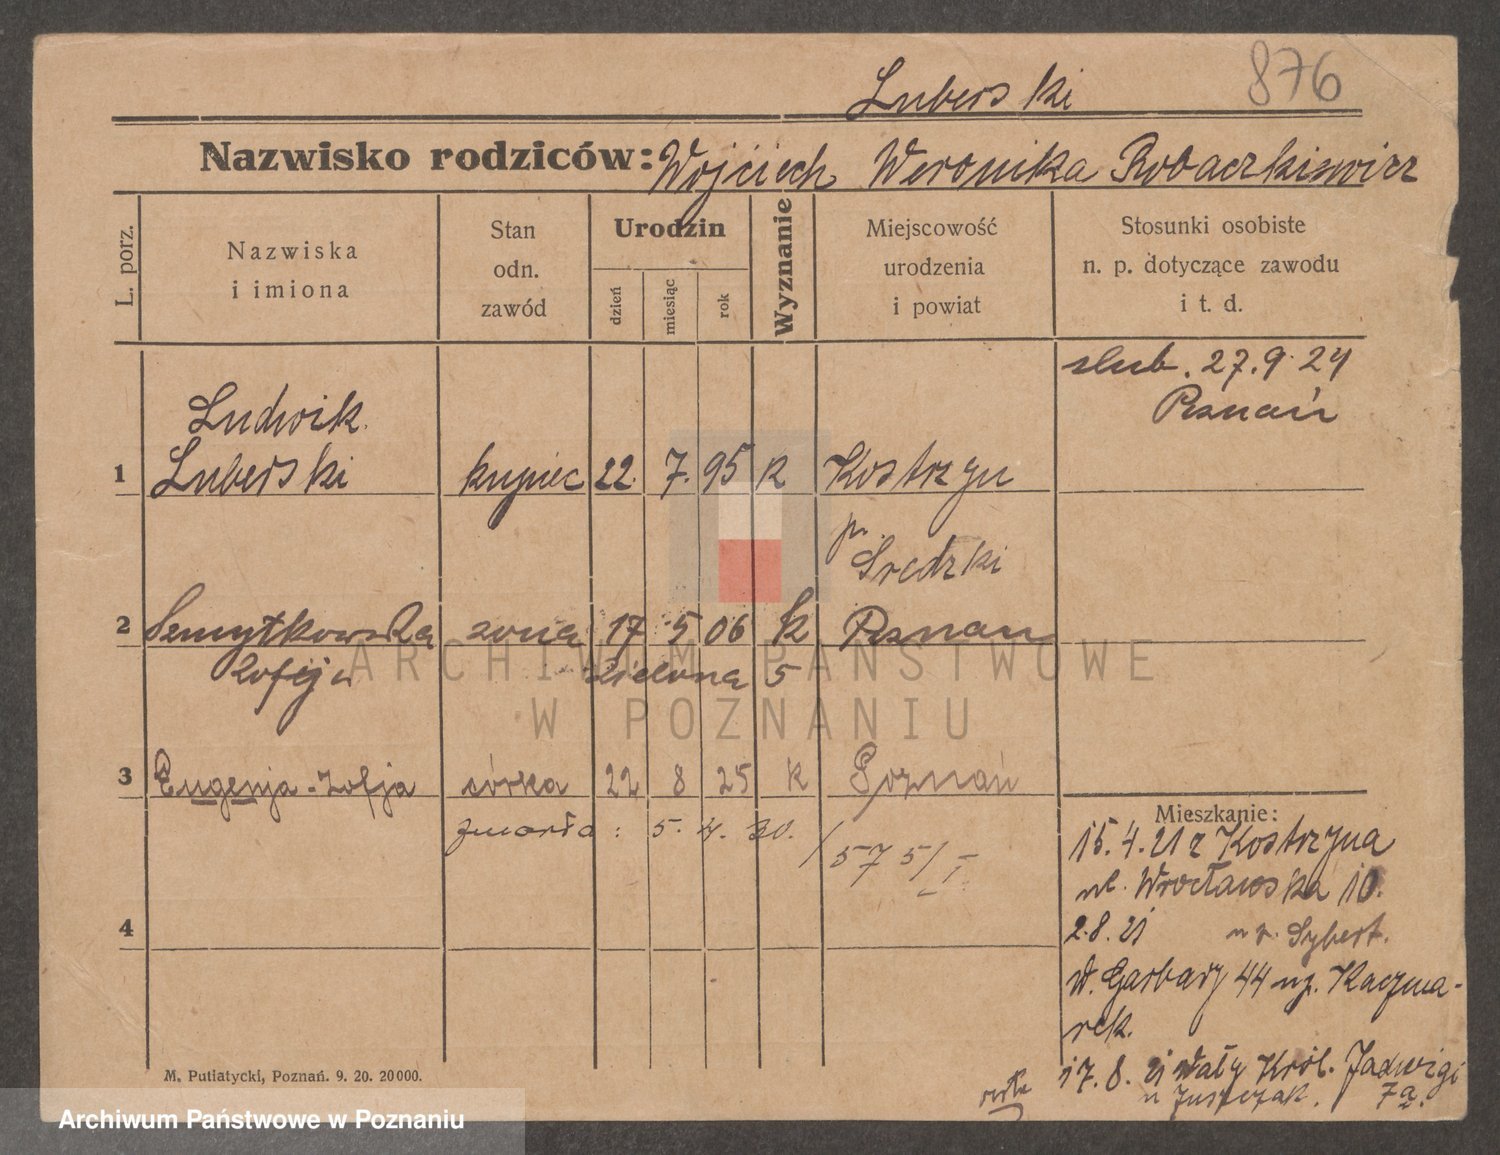 876
Luberski
Nazwisko rodziców: Wojciech Weronika Robaczkiewicz
L. porz.
Nazwiska
i imiona
Stan
odn.
zawód
Urodzin
dzień
miesiąc
rok
Wyznanie
Miejscowość
urodzenia
i powiat
Stosunki osobiste
n. p. dotyczące zawodu
i t. d.
slub. 27.9.24
Poznań
Ludwik
1 Luberski kupiec 22. 7. 95 k Kostrzyn
p. Sredzki
2 żona 17 5 06 k Poznan
Zofija Zielona 5
3 Eugenja-Zofja córka 22 8 25 k Poznań
zmarła: 5. 4. 30. /575/I.
4
Mieszkanie:
15.4.21 z Kostrzyna
ul. Wrocławska 10.
2.8.21 Sybert.
W. Garbary 44 Kaczma-
rek.
17.8.21 Wały Król. Jadwigi
u Juszczak. 7a.
M. Putiatycki, Poznań. 9. 20. 20000.
ARCHIWUM PAŃSTWOWE
W POZNANIU
Archiwum Państwowe w Poznaniu